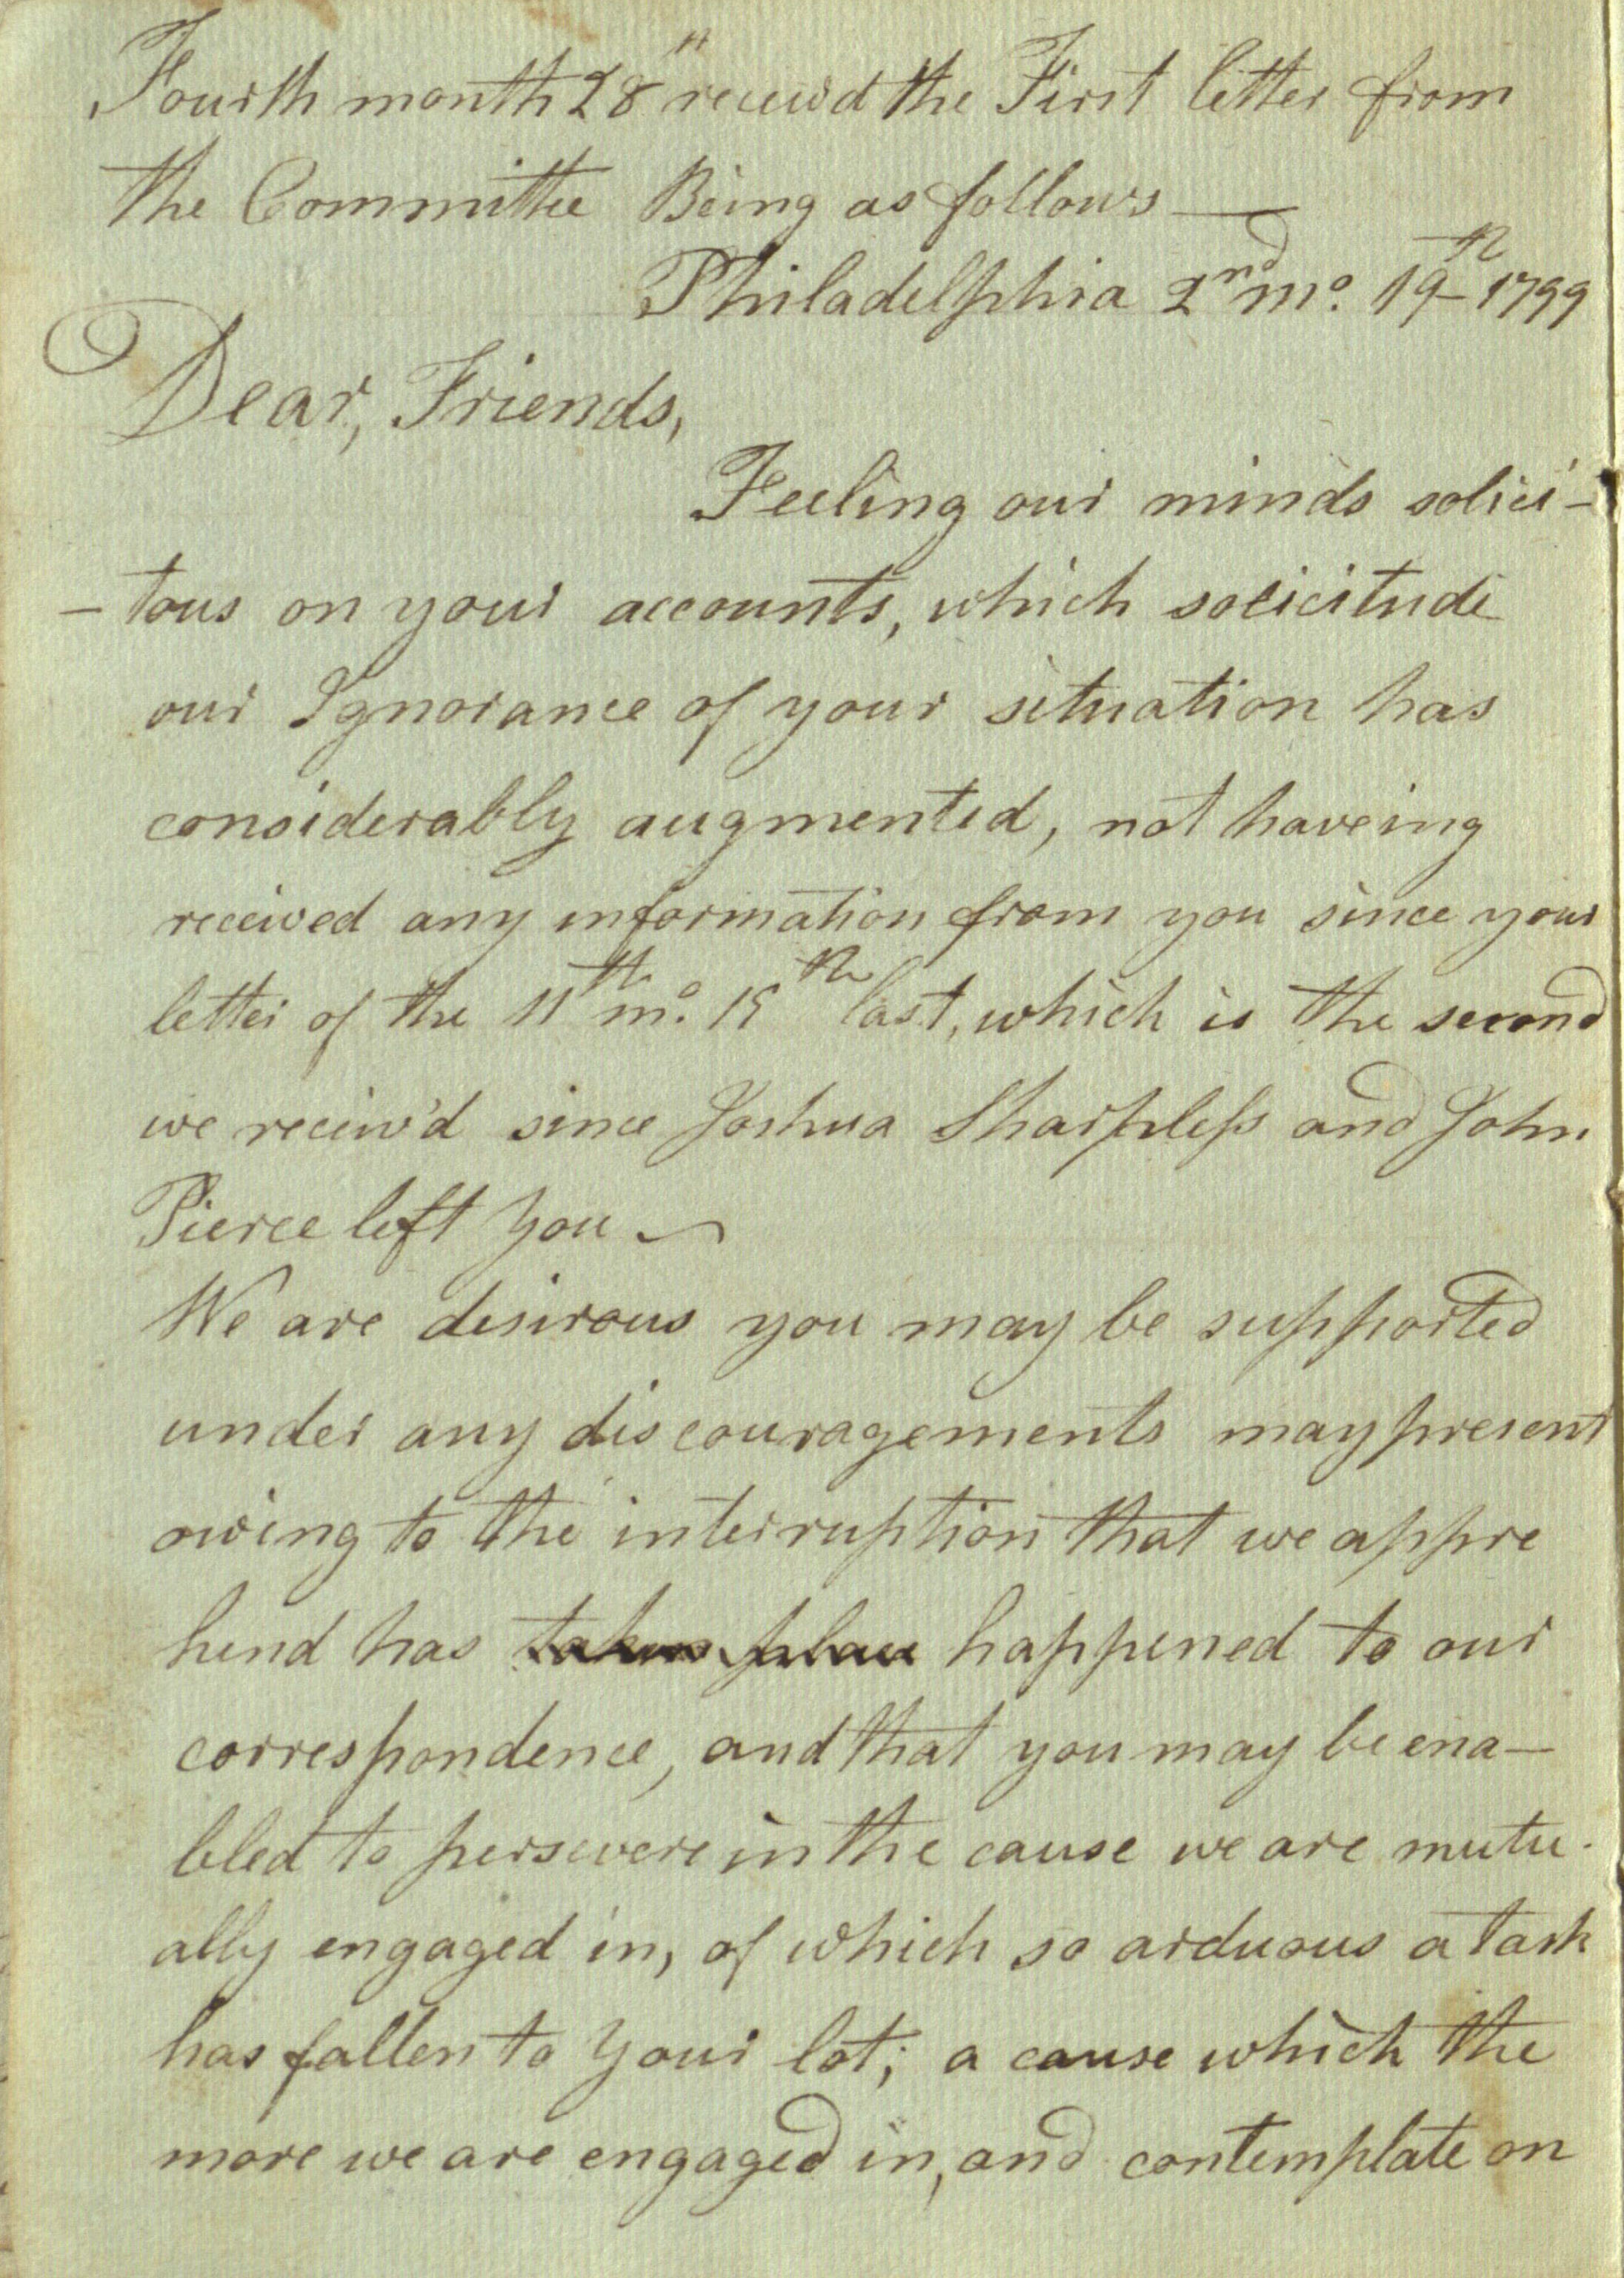 Fourth month 28th receiv'd the First letter from
the Committee Being as follows —
Philadelphia 2nd mo. 19th 1799
Dear, Friends,
Feeling our minds solici-
-tous on your accounts, which solicitude
our Ignorance of your situation has
considerably augmented, not haveing
received any information from you since your
letter of the 11th mo. 15th last, which is the second
we receiv'd since Joshua Sharpless and John
Pierce left you ~
We are desirous you may be supported
under any discouragements may present
owing to the interruption that we appre
hend has taken place happened to our
correspondence, and that you may be ena-
bled to persevere in the cause we are mutu-
ally engaged in, of which so arduous a task
has fallen to your lot; a cause which the
more we are engaged in, and contemplate on